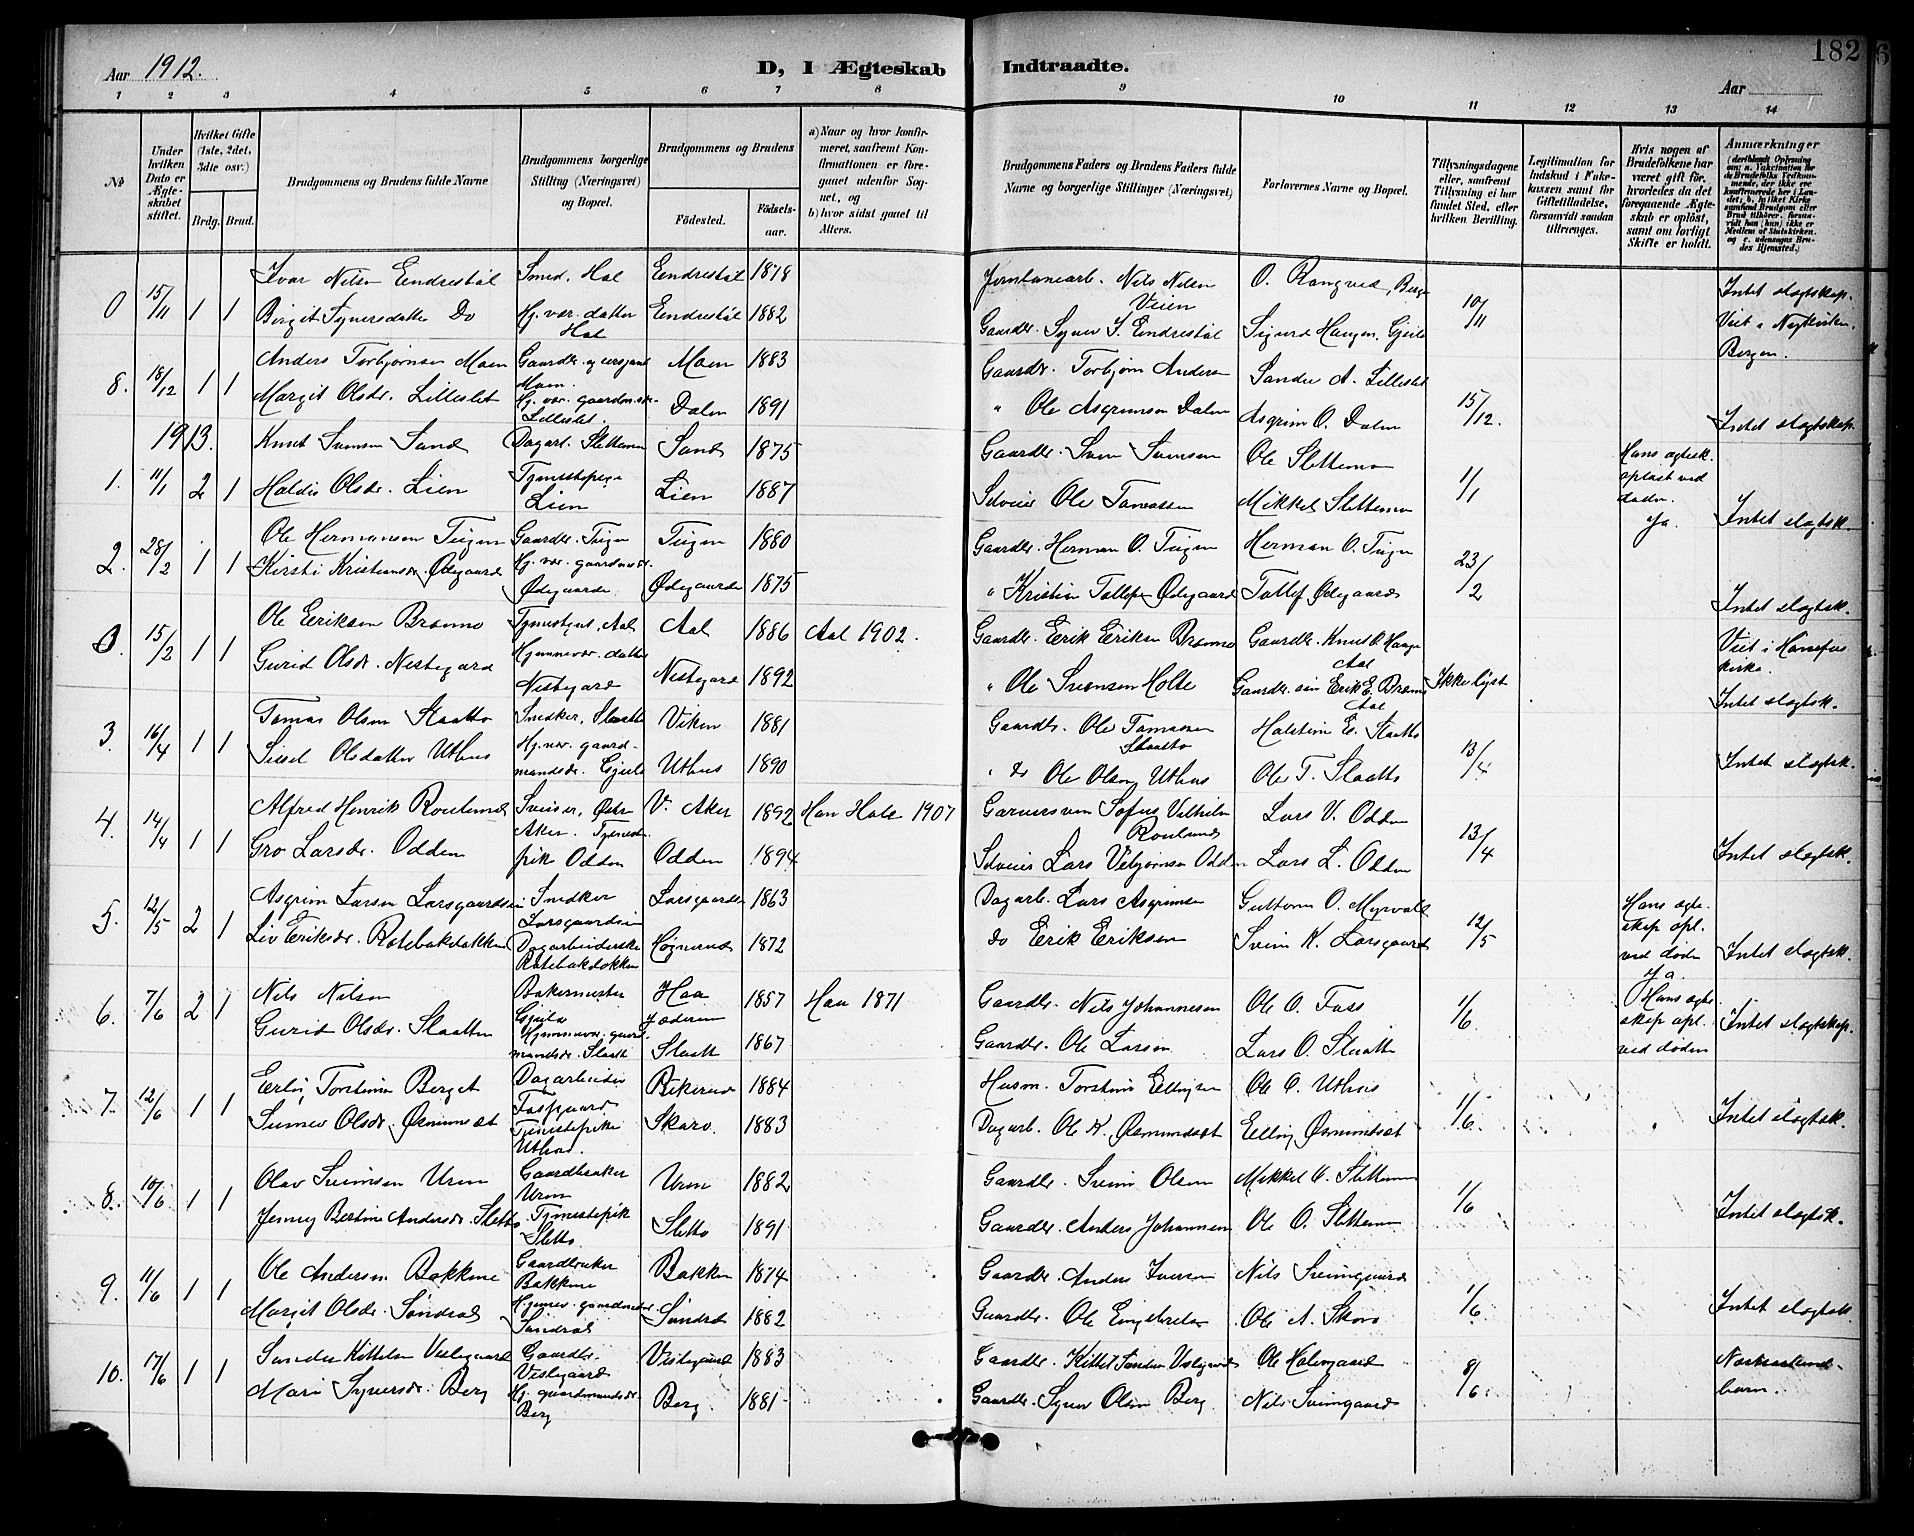 Aar 1912.
D, I Ægteskab Indtraadte.
Aar
182
1 2 3 4 5 6 7 8 9 10 11 12 13 14
No
Under hvilken Dato er Ægteskabet stiftet.
Hvilket Gifte (1ste, 2det, 3die osv.)
Brdg. Brud.
Brudgommens og Brudens fulde Navne
Brudgommens borgerlige Stilling (Næringsvei) og Bopæl.
Brudgommens og Brudens
Fødested. Fødselsaar.
a) Naar og hvor konfirmeret, saafremt Konfirmationen er foregaaet udenfor Sognet, og
b) hvor sidst gaaet til Alters.
Brudgommens Faders og Brudens Faders fulde Navne og borgerlige Stillinger (Næringsvei)
Forlovernes Navne og Bopæl.
Tillysningsdagene eller, saafremt Tillysning ei har fundet Sted, efter hvilken Bevilling.
Legitimation for Indskud i Enkekassen samt for Giftetilladelse, forsaavidt saadan tiltrænges.
Hvis nogen af Brudefolkene har været gift før, hvorledes da det foregaaende Ægteskab er opløst, samt om lovligt Skifte er holdt.
Anmærkninger
0 15/11 1 1 Ivar Nilsen Eendrestøl Smed, Hol Eendrestøl 1878 Nils Nilsen Veien O. Rongved, Berge 10/11 Intet slegtskap.
Birgit Synersdatter Do Hj. vær. datter Hol Eendrestøl 1882 Gaardbr. Syver I. Eendrestøl Sigurd Haugen, Gjeilo Viet i Nykirken. Bergen.
8. 18/12 1 1 Anders Torbjørnsen Moen Gaardbr. Moen. Moen 1883 Gaardbr. Torbjørn Andersen Sander A. Lilleslet 15/12.
Margit Olsdr. Lilleslet Hj. vær. Lilleslet. Dalen 1891 " Ole Asgrimsen Dalen Asgrim O. Dalen Intet slegtskap.
1913.
1. 11/1 2 1 Knut Svensen Sand Dagarb. Slettemoen Sand 1875 Gaardbr. Sven Svensen Ole Slettemoen 1/1 Hans egtesk. opløst ved døden. Ja.
Haldis Olsdr. Lien Tjenestepige Lien Lien 1887 Selveier Ole Tomassen Mikkel Slettemoen Intet slegtsk.
2. 28/2 1 1 Ole Hermansen Tuzen Gaardbr. Tuzen 1880 Gaardbr. Herman O. Herman O. 23/2
Kirsti Kristiansdr. Ødegaard Hj. vær. gaardmdr. Ødegaarde Ødegaarde 1875 " Kristian Tollefsen Ødegaard Tollef Ødegaard Intet slegtsk.
0. 15/2 1 1 Ole Eeriksen Bromo Aal Aal 1886 Aal 1902. Gaardbr. Eerik Eeriksen Bromo Gaardbr. Knut O. Hauge Aal Viet i Hønefos kirke.
Gurid Olsdr. Nestegard Hjemmevær. datter Nestegard Nestegard 1892 " Ole Svensen Holte Gaardbr. søn Erik E. Bromo Aal Ikke lyst Intet slegtsk.
3. 16/4 1 1 Tomas Olsen Slaatto Snedker, Slaatto Viken 1881 Gaardbr. Ole Tomassen Slaatto Halstein E. Slaatto 13/4
Sissel Olsdatter Uthus Hj. vær. gaardmandsdr. Gjeilo Uthus 1890 " do Ole Olsen Uthus Ole T. Slaatto Intet slegtsk.
4. 14/4 1 1 Alfred Henrik Roulund Sveiser, Østr Aker. V. Aker 1892 Han Hole 1907 Garversven Sofus Vilhelm Roulund Lars V. Odden 13/4
Gro Larsdr. Odden Tjenestepike Odden Odden 1894 Selveier Lars Vebjørnsen Odden Lars L. Odden Intet slegtsk.
5. 12/5 2 1 Asgrim Larsen Larsgaardseie Snedker Larsgaardseie Larsgaarden 1863 Dagarb. Lars Asgrimsen Guttorm O. Myrvold 12/5 Hans egteskap opl. ved døden Ja.
Liv Eriksdr. Rotebakdokken Dagarbeiderske Rotebakdokken Høgnerud 1872 do Eerik Eeriksen Svein K. Larsgaard Intet slegtsk.
6. 7/6 2 1 Nils Nilsen Bakermester Gjeilo Haa Jæderen 1857 Haa 1871 Gaardbr. Nils Johannesen Ole O. Foss 1/6. Hans egteskap opl. ved døden
Gurid Olsdr. Slaatten Hjemmevær. gaardmandsdr. Slaatt Slaatt 1867 Gaardbr. Ole Larsen Lars O. Slaatto Intet slegtskap.
7. 12/6 1 1 Eerling Torsteinsen Berget Dagarbeider Fossgaard 1884 Husm. Torstein Ellingsen Ole O. Uthus 1/6.
Sunnev Olsdr. Øsmunset Tjenestepike Uthus Skaro. 1883 Dagarb. Ole K. Øsmundset Elling Øsmundset Intet slegtsk.
8. 10/6 1 1 Olav Sveinsen Uren Gaardbruker Uren Uren 1882 Gaardbr. Svein Olsen Mikkel O. Slettemoen 1/6
Jenny Bertine Andersdr. Sletto Tjenestepike Sletto Sletto 1891 Gaardbr. Anders Johannesen Ole O. Slettemoen Intet slegtsk.
9. 11/6 1 1 Ole Andersen Bakkene Gaardbruker Bakkene Bakken 1874 Gaardbr. Anders Iversen Nils Sveingaard 1/6.
Margit Olsdr. Søndral Hjemmev. Søndral Søndral 1882 Gaardbr. Ole Engebretsen Ole A. Skoro Intet slegtsk.
10. 17/6 1 1 Sander Kittelsen Veslegaard Gaardbr. Veslegaard Veslegaard 1883 Gaardbr. Kittel Sandersen Veslegaard Ole Holengaard 8/6. Næstsøskendebarn.
Mari Synersdr. Berg Hj. gaardmandsdr. Berg Berg. 1881 Gaardbr. Syver Olsen Berg. Nils Sveingaard